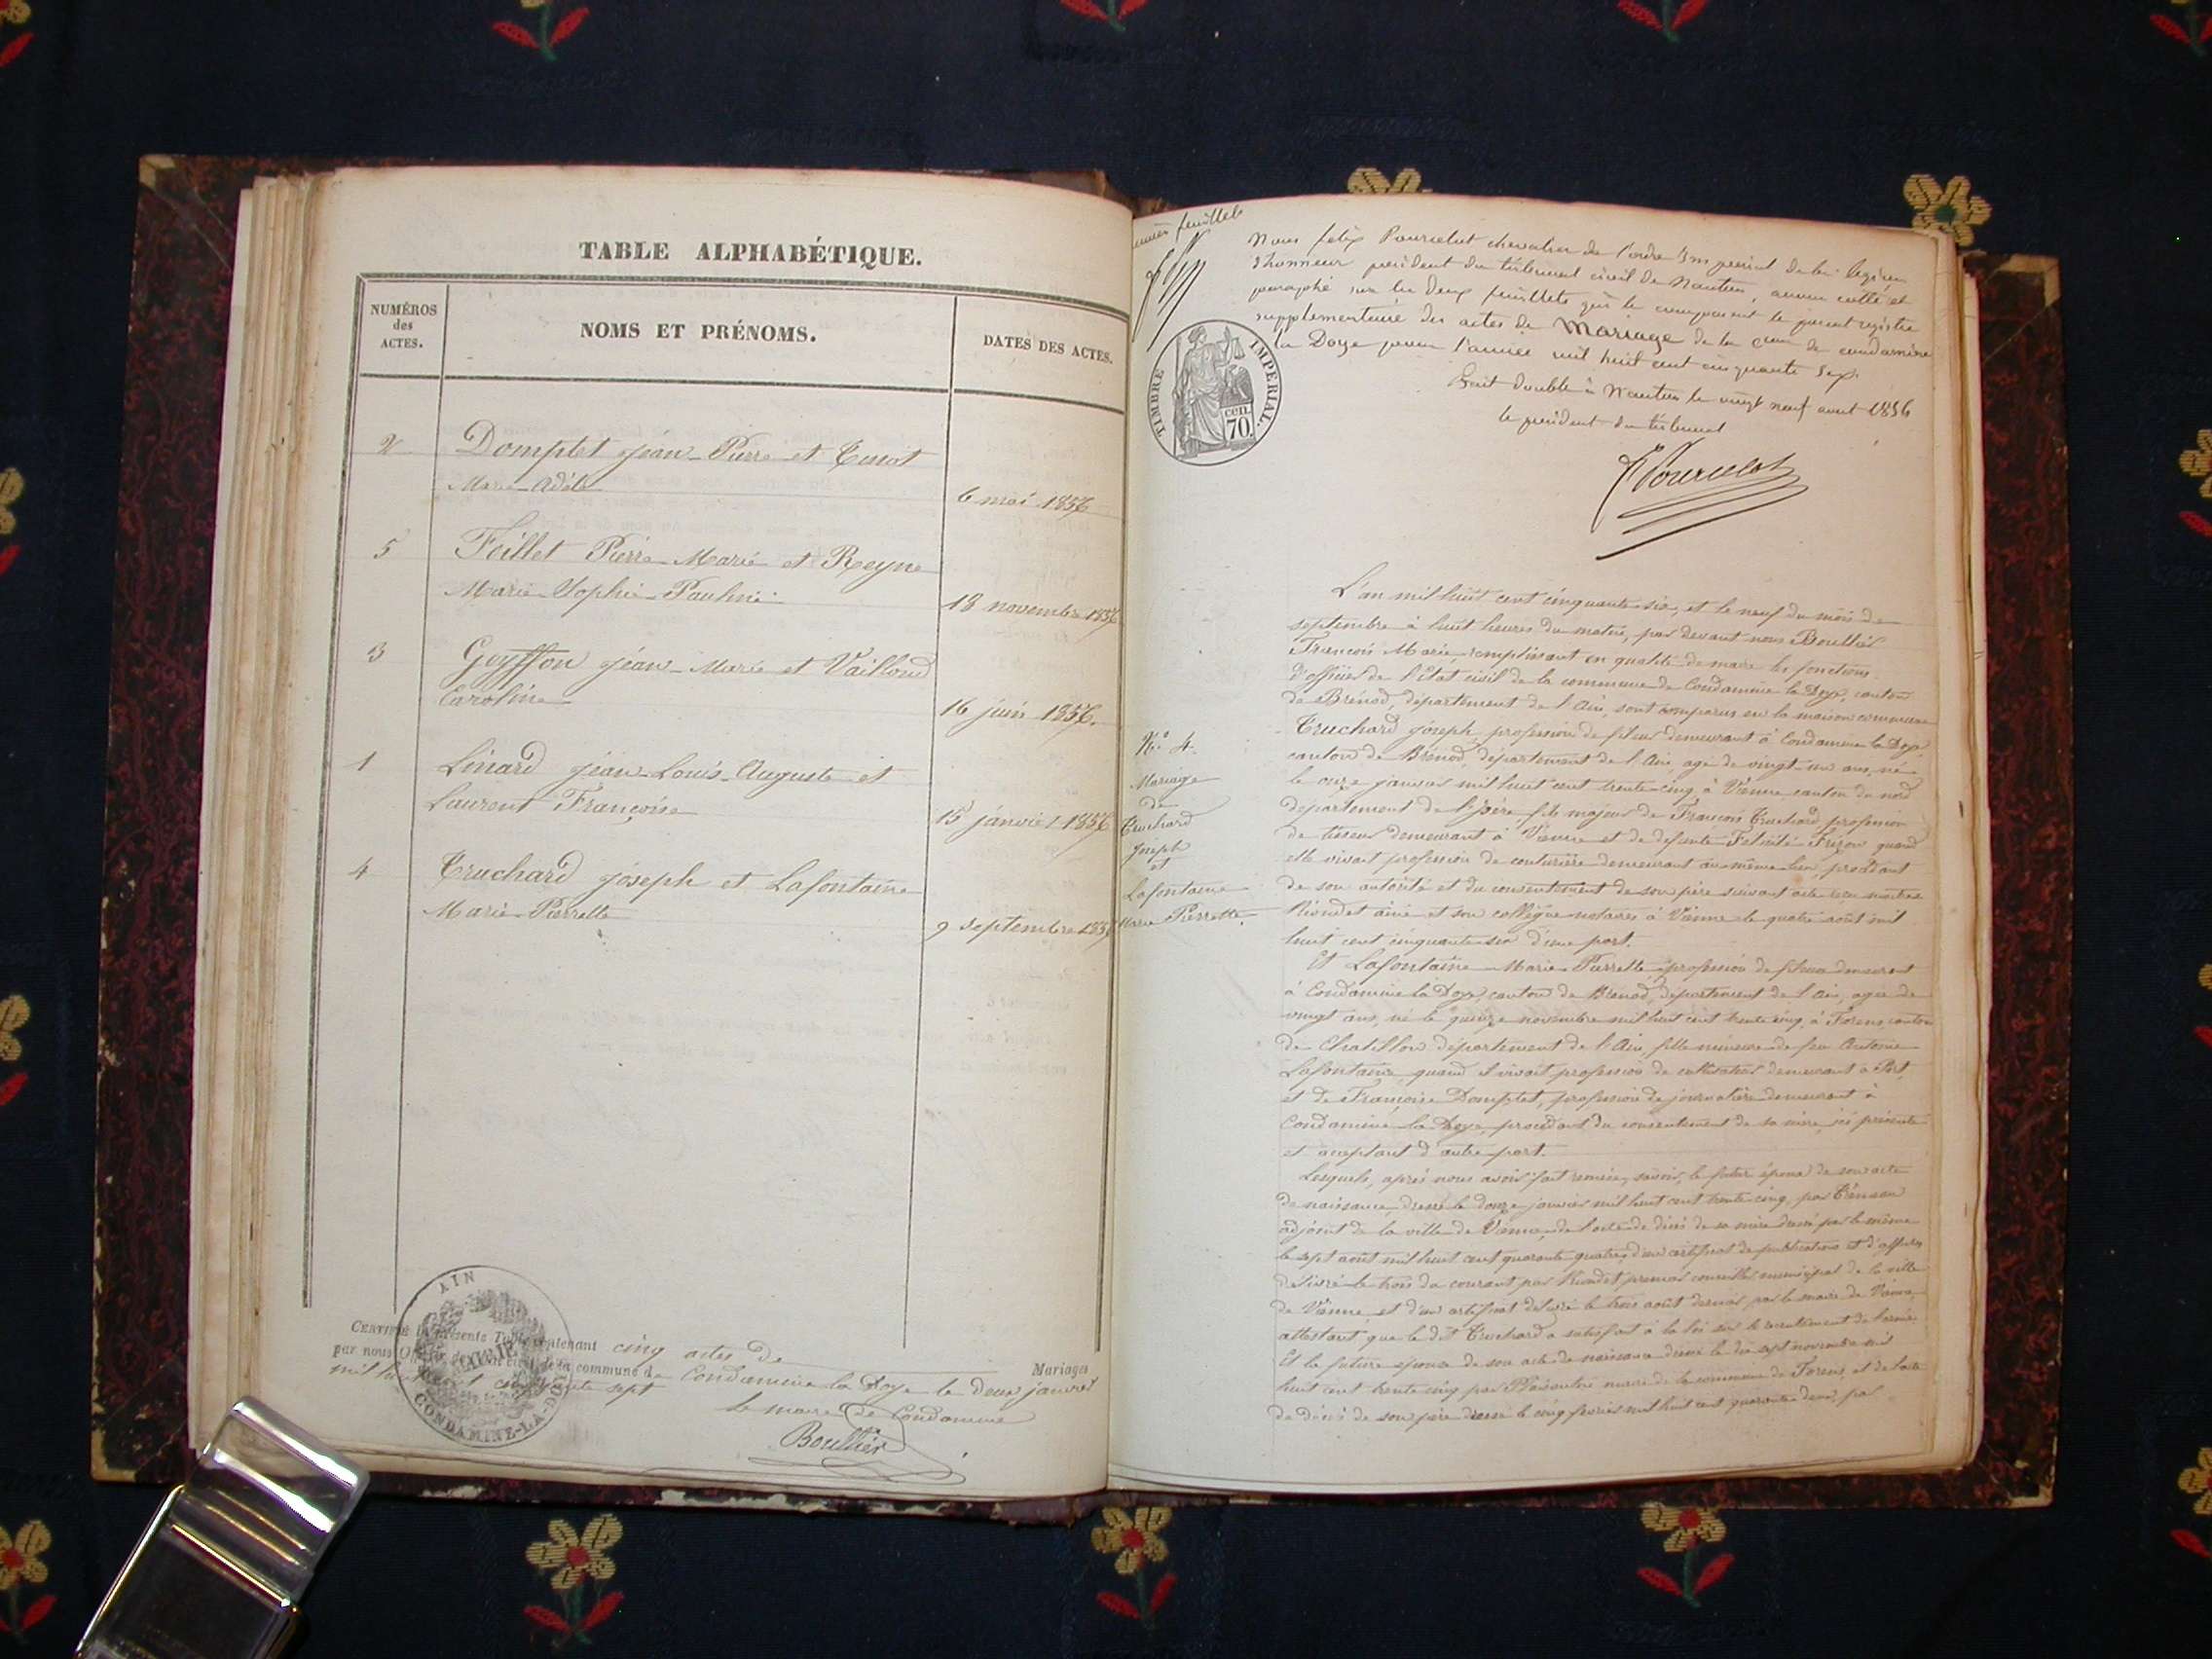 TABLE ALPHABÉTIQUE.
NUMÉROS
des
ACTES.
NOMS ET PRÉNOMS.
DATES DES ACTES.
2 Domptet jean-Pierre et
Marie-Adèle 6 mai 1856
5 Feillet Pierre-Marie et Reyne
Marie-Sophie-Pauline 18 novembre 1856
3 Goyffon jean-Marie et Vailloud
Caroline 16 juin 1856.
1 Linard jean-Louis-Auguste et
Laurent Françoise 15 janvier 1856
4 Truchard joseph et Lafontaine
Marie-Pierrette 9 septembre 1856
CERTIFIÉ la présente Table contenant cinq actes de Mariages
par nous Officier de l'état civil de la commune de Condamine la Doye le deux janvier
mil huit cent cinquante sept
le maire de Condamine
Boullier
AIN
MAIRIE
CONDAMINE-LA-DOYE
feuillet
TIMBRE IMPERIAL.
cen.
70
Nous felix Pourcelot chevalier de l'ordre Imperial de la légion
d'honneur président du tribunal civil de Nantua, avons cotté et
paraphé sur les deux feuillets qui le composent le présent registre
supplémentaire des actes de Mariage de la de condamine
la Doye pour l'année mil huit cent cinquante six.
Fait double à Nantua le vingt neuf aout 1856
le président du tribunal
Pourcelot
N.° 4.
Mariage
de
Truchard
Joseph
et
Lafontaine
Marie Pierrette.
L'an mil huit cent cinquante-six, et le neuf du mois de
septembre à huit heures du matin, par devant nous Boullier
François Marie, remplissant en qualité de maire les fonctions
d'officier de l'Etat civil de la commune de Condamine la Doye, canton
de Brénod, département de l'Ain, sont comparus en la maison commune
Truchard joseph, profession de fileur demeurant à Condamine la Doye,
canton de Brénod, département de l'Ain, agé de vingt-un ans, né
le onze janvier mil huit cent trente-cinq, à Vienne canton du nord
département de l'Isère, fils majeur de François Truchard, profession
de tisseur demeurant à Vienne et de defunte Felicité Frizon quand
elle vivait profession de couturière demeurant au même lieu, procédant
de son autorité et du consentement de son père suivant acte reçu maitre
Riondet ainé et son collègue notaires à Vienne le quatre août mil
huit cent cinquante-six d'une part.
Et Lafontaine Marie-Pierrette, profession de fileuse demeurant
à Condamine la Doye, canton de Brénod, département de l'Ain, agée de
vingt ans, né le quinze novembre mil huit cent trente cinq, à Forens, canton
de Chatillon département de l'Ain, fille mineure de feu Antoine
Lafontaine, quand il vivait profession de cultivateur demeurant à Port,
et de Françoise Domptet, profession de journalière demeurant à
Condamine la Doye, procédant du consentement de sa mère, ici présente
et acceptant d'autre part.
Lesquels, après nous avoir fait remise, savoir, le futur époux de son acte
de naissance, dressé le douze janvier mil huit cent trente-cinq, par
adjoint de la ville de Vienne, de l'acte de décès de sa mère dressé par le même
le sept août mil huit cent quarante-quatre, d'un certificat de publications et d'affiches
délivré le trois du courant par Riondet premier conseiller municipal de la ville
de Vienne, et d'un certificat délivré le trois août dernier par le maire de Vienne,
attestant que le dit Truchard a satisfait à la loi sur le recrutement de l'armée.
Et la future épouse de son acte de naissance dressé le dix sept novembre mil
huit cent trente cinq par maire de la commune de Forens, et de l'acte
de décès de son père dressé le cinq février mil huit cent quarante-deux, par